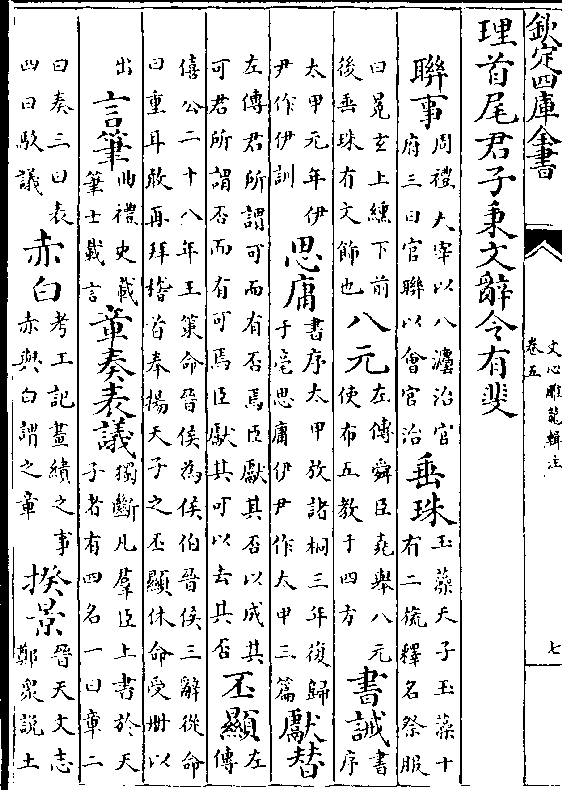 欽定四庫全書
文心雕龍輯注
卷五
七
理首尾君子秉文辭令有斐
聯事周禮大宰以八灋治官府三曰官聯以會官治垂珠玉藻天子玉藻十有二旒釋名祭服
曰冕玄上纁下前後垂珠有文飾也八元左傳舜臣堯舉八元使布五教于四方書誡書序
太甲元年伊尹作伊訓思庸書序太甲放諸桐三年復歸于亳思庸伊尹作太甲三篇獻替
左傳君所謂可而有否焉臣獻其否以成其可君所謂否而有可焉臣獻其可以去其否丕顯左傳
僖公二十八年王策命晉侯為侯伯晉侯三辭從命曰重耳敢再拜稽首奉揚天子之丕顯休命受册以
出言筆曲禮史載筆士載言章奏表議獨斷凡羣臣上書於天子者有四名一曰章二
曰奏三曰表四曰駁議赤白考工記畫繢之事赤與白謂之章揆景晉天文志鄭衆説土